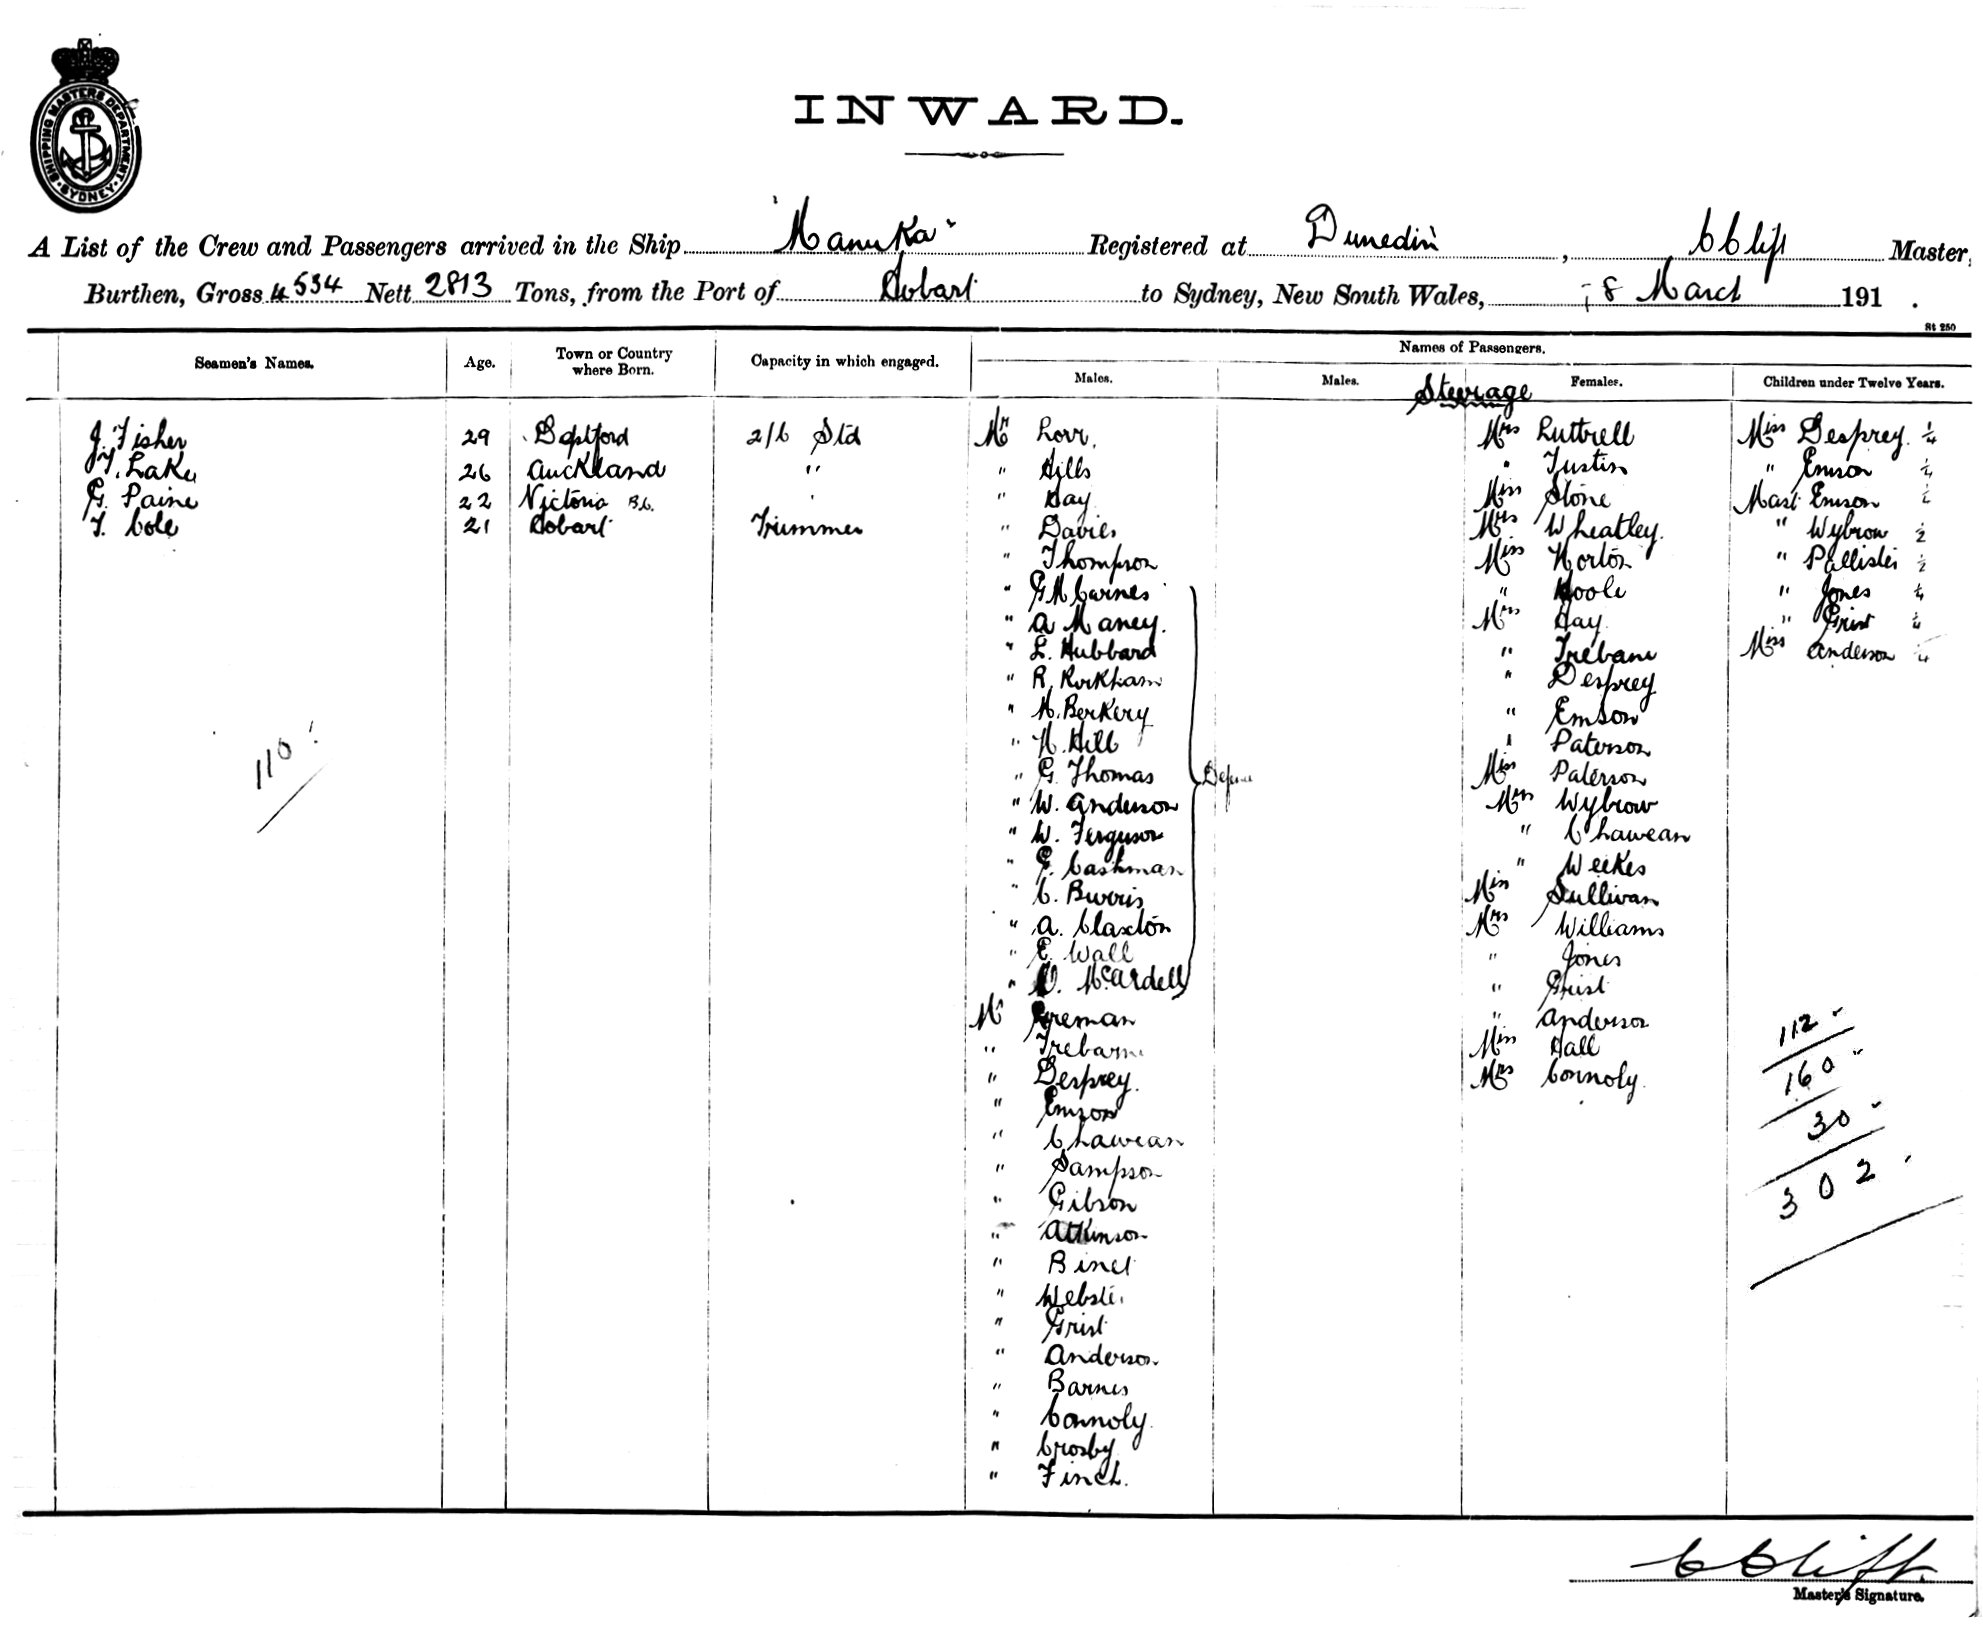 SHIPPING MASTERS DEPARTMENT
SYDNEY
INWARD.
A List of the Crew and Passengers arrived in the Ship "Manuka" Registered at Dunedin, C Clift Master,
Burthen, Gross 4534 Nett 2813 Tons, from the Port of Hobart to Sydney, New South Wales, 8 March 191 .
St 250
Seamen's Names. Age. Town or Country where Born. Capacity in which engaged. Names of Passengers.
Males. Males. Females. Children under Twelve Years.
Steerage
J. Fisher 29 Deptford 2/6 Std
Lake 26 Auckland "
G. Paine 22 Victoria B.C. '
T. Cole 21 Hobart Trimmer
110
Mr Lovr.
" Hills
" Hay
" Davies
" Thompson
" G M Carnes
" A Maney.
" L. Hubbard
" R. Rorkham
" H. Berkery
" H. Hill
" G. Thomas
" W. Anderson
" W. Ferguson
" G. Cashman
" C. Burris
" A. Claxton
" E. Wall
" McArdell
Defence
Mr Freman
" Trebarne
" Desprey.
" Emson
" Chawean
" Sampson
" Gibson
" Atkinson
" Binet
" Webster
" Grist
" Anderson
" Barnes
" Connoly.
" Crosby
" Finch.
Mrs Luttrell
" Justin
Miss Stone
Mrs Wheatley.
Miss Horton
" Hoole
Mrs Hay
" Trebane
" Desprey
" Emson
" Paterson
Miss Paterson
Mrs Wybrow
" Chawean
" Weekes
Miss Sullivan
Mrs Williams
" Jones
" Grist
" Anderson
Miss Hall
Mrs Connoly.
Miss Desprey. 1/4
" Emson 1/4
Mast Emson 1/2
" Wybrow 1/2
" Pallister 1/2
" Jones 1/4
" Grist 1/4
Miss Anderson 1/4
112
160
30
302
C Clift.
Master's Signature.